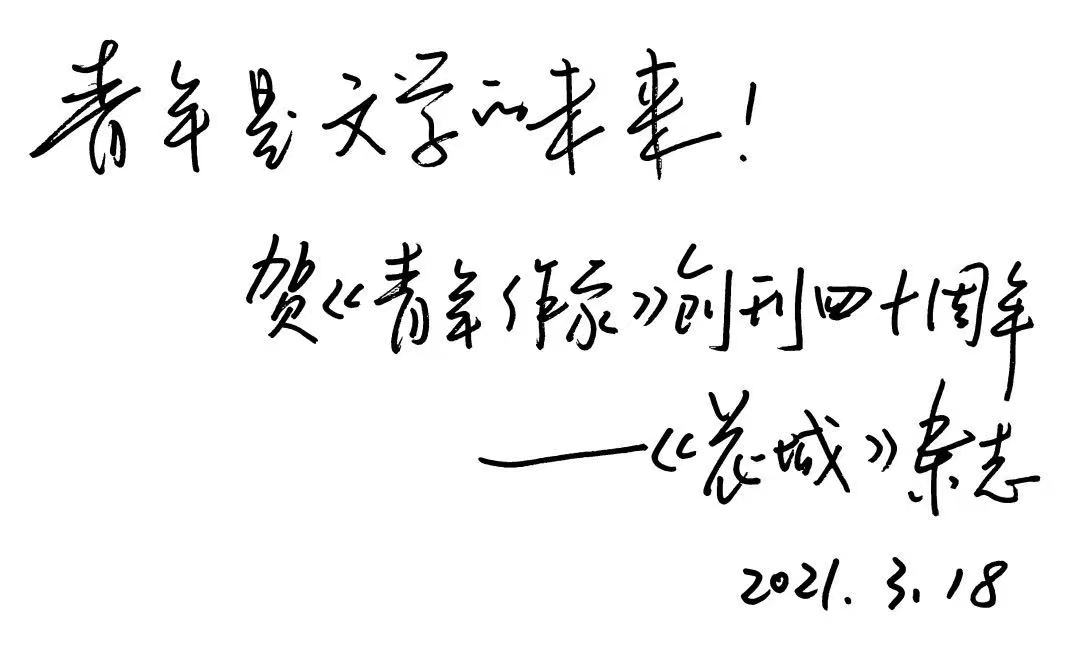 青年是文学的未来！
贺《青年作家》创刊四十周年
——《長城》杂志
2021.3.18